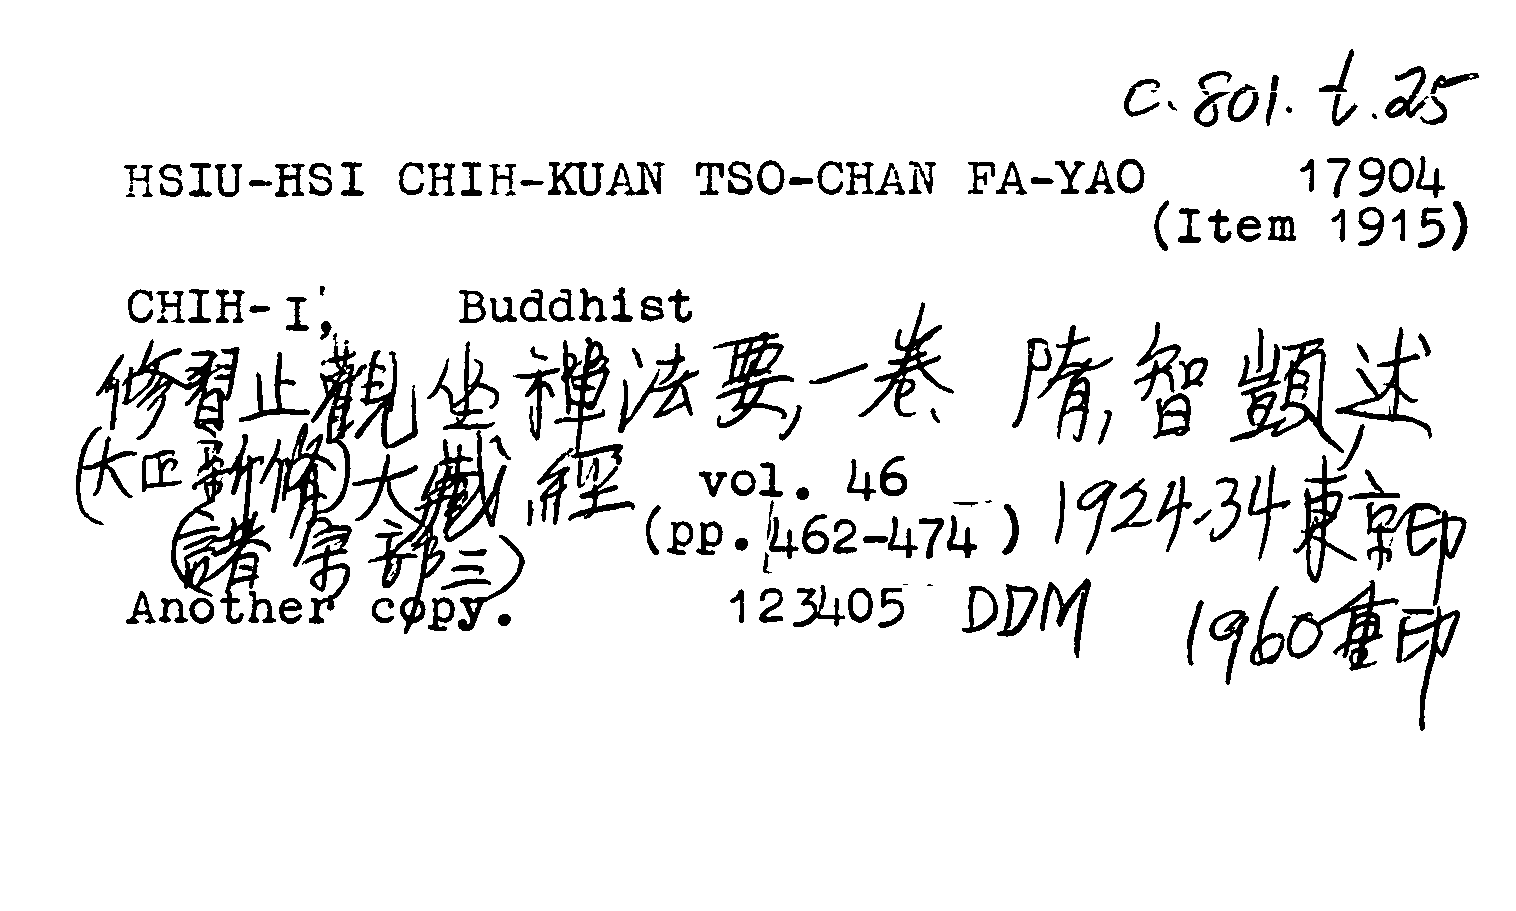 C.801.t.25
HSIU-HSI CHIH-KUAN TSO-CHAN FA-YAO 17904
(Item 1915)
CHIH-I, Buddhist
修習止觀坐禪法要,一卷 隋,智顗,述,
(大正新脩)大藏經 vol. 46 1924-34東京印
(諸宗部三) (pp. 462-474)
Another copy. 123405 DDM 1960重印